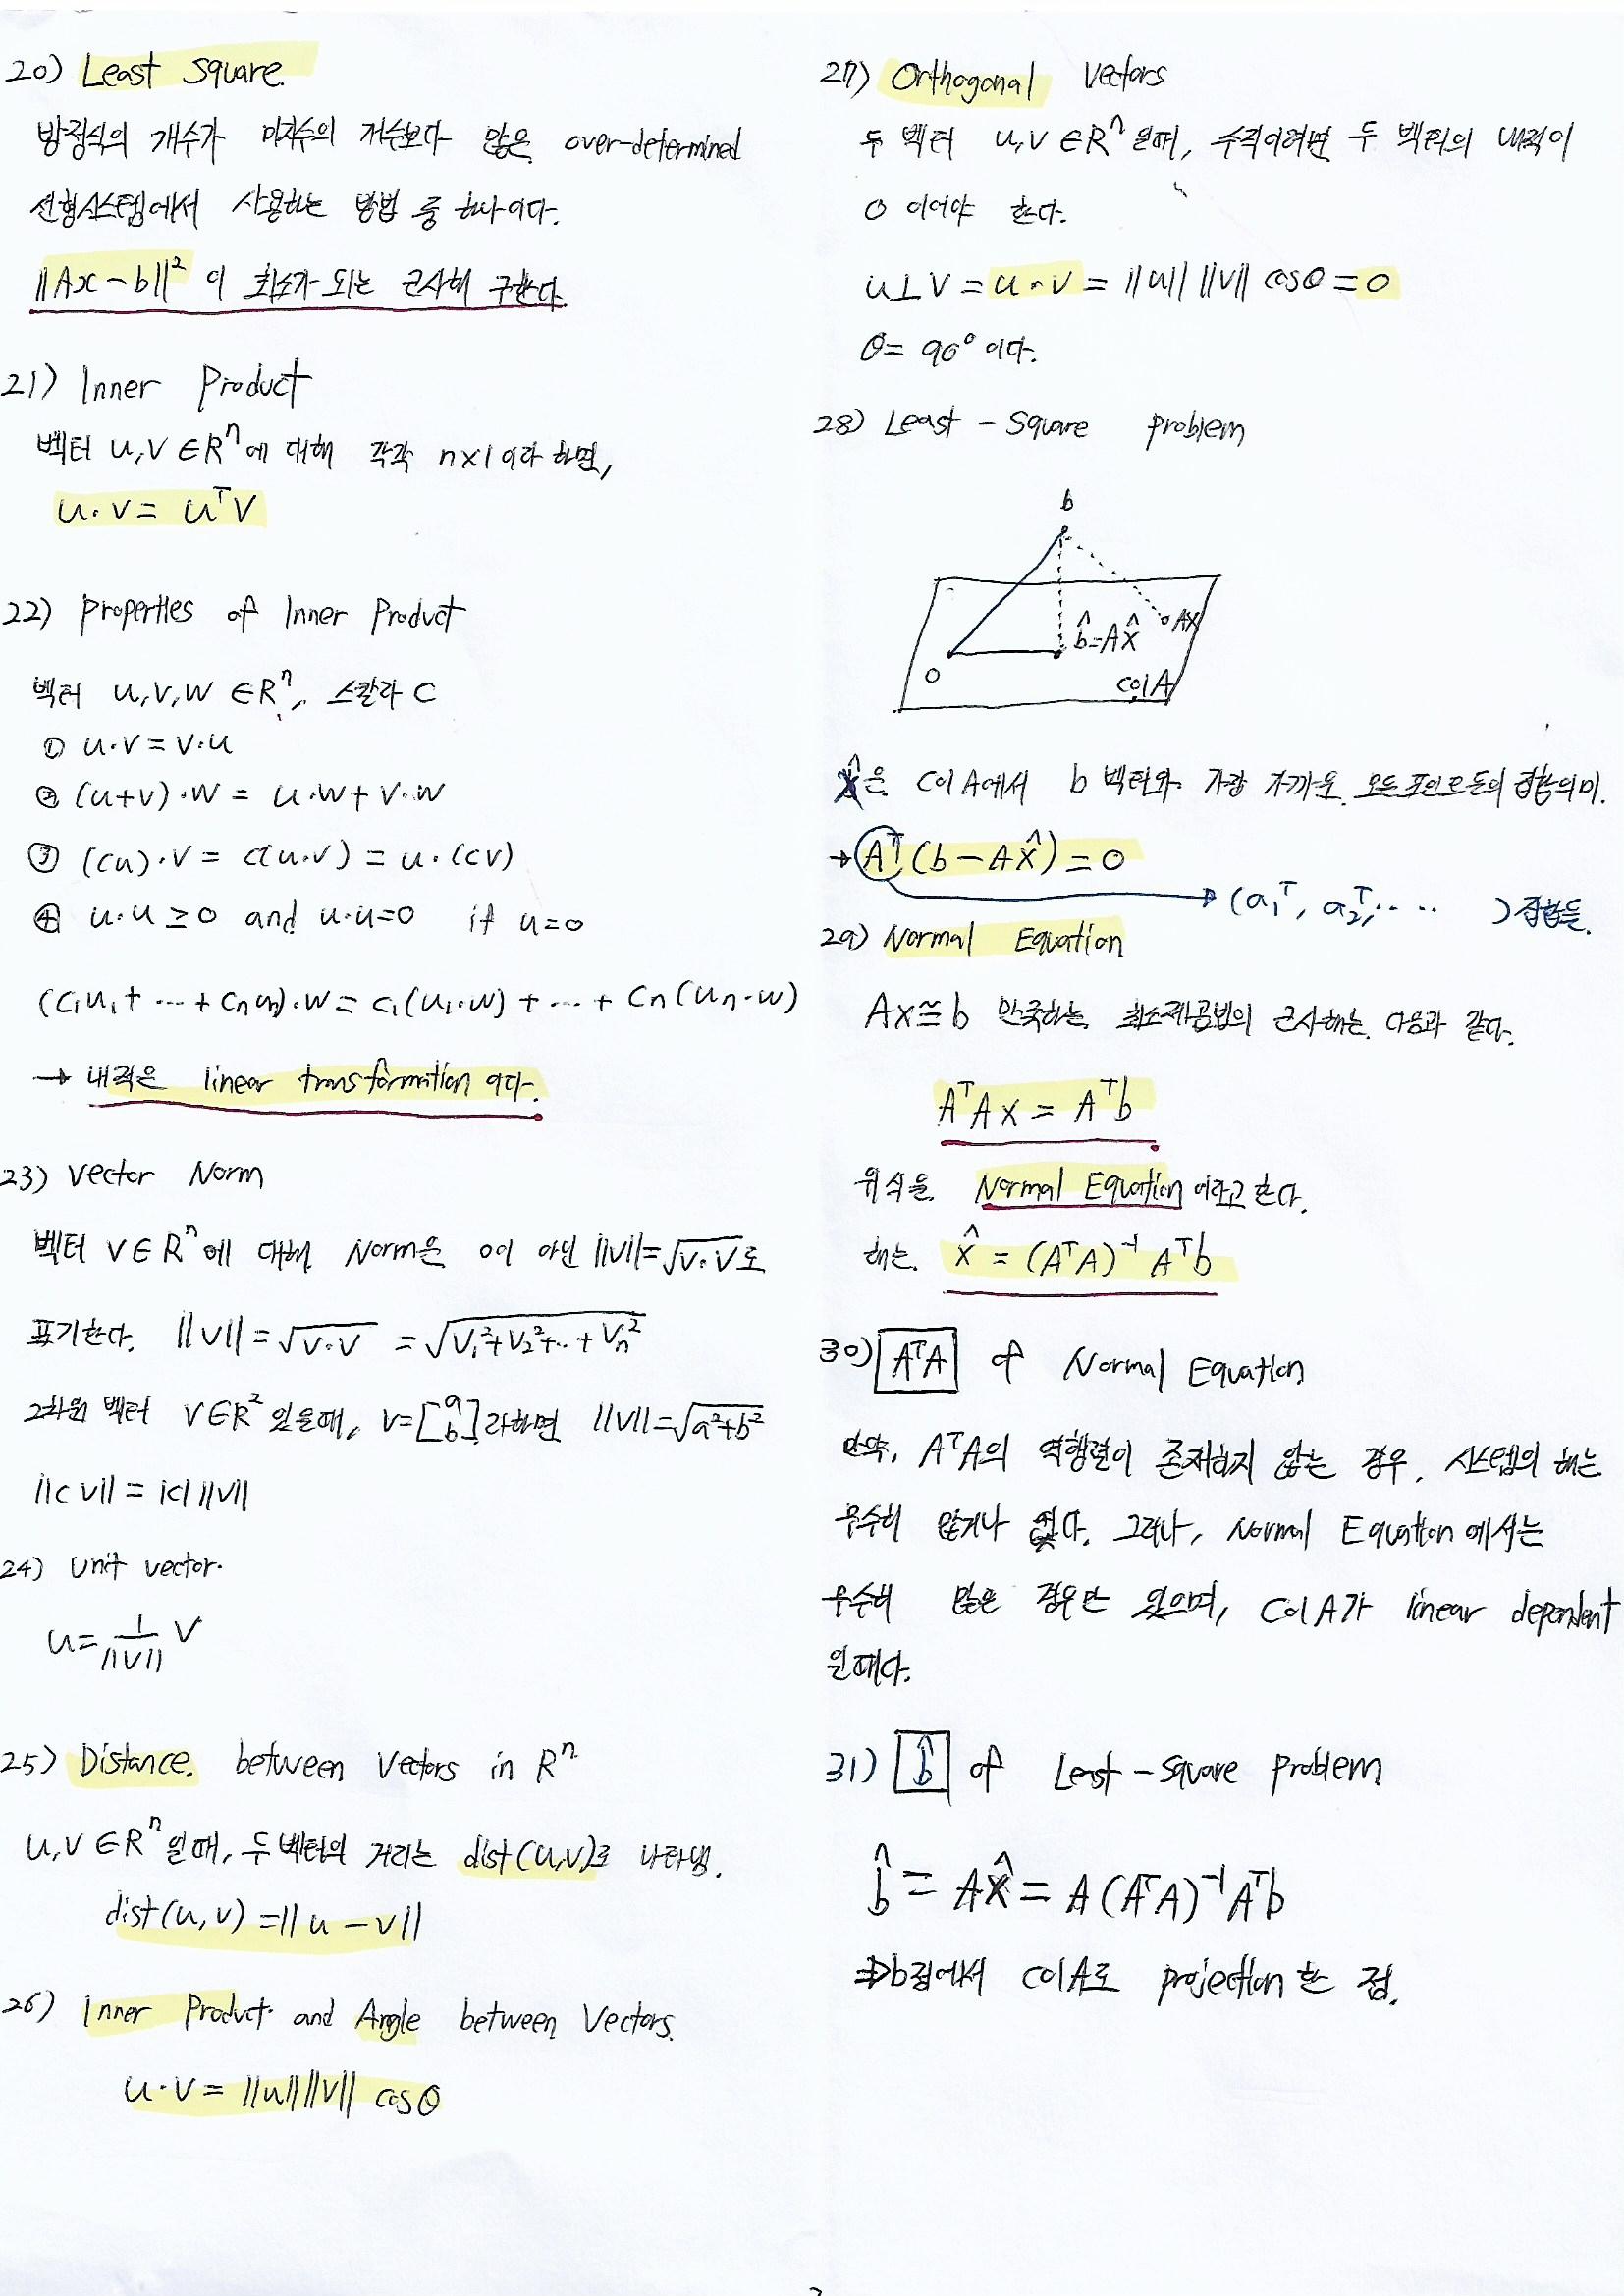 20) Least Square.
방정식의 개수가 미지수의 개수보다 많은 over-determined
선형시스템에서 사용하는 방법 중 하나이다.
||Ax - b||² 이 최소가 되는 근사해 구한다.
21) Inner Product
벡터 u, v ∈ Rⁿ에 대해 각각 n×1 이라 하면,
u·v = uᵀv
22) Properties of Inner Product
벡터 u, v, w ∈ Rⁿ, 스칼라 C
① u·v = v·u
② (u+v)·w = u·w + v·w
③ (cu)·v = c(u·v) = u·(cv)
④ u·u ≥ 0 and u·u=0 if u=0
(c₁u₁ + ... + cₙuₙ)·w = c₁(u₁·w) + ... + cₙ(uₙ·w)
→ 내적은 linear transformation 이다.
23) Vector Norm
벡터 v ∈ Rⁿ에 대해 Norm은 0이 아닌 ||v||=√v·v로
표기한다. ||v|| = √v·v = √v₁²+v₂²+..+vₙ²
2차원 벡터 v∈R² 있을때, v=[a b]라하면 ||v||=√a²+b²
||c v|| = |c| ||v||
24) Unit vector.
u = 1/||v|| v
25) Distance. between Vectors in Rⁿ
u, v ∈ Rⁿ 일때, 두 벡터의 거리는 dist(u,v)로 나타냄.
dist(u, v) = ||u - v||
26) Inner Product and Angle between Vectors.
u·v = ||u|| ||v|| cosθ
27) Orthogonal Vectors
두 벡터 u, v ∈ Rⁿ 일때, 수직이려면 두 벡터의 내적이
0 이어야 한다.
u⊥v = u·v = ||u|| ||v|| cosθ = 0
θ = 90° 이다.
28) Least - Square problem
b
b̂=Ax̂
AX
0
colA
x̂은 ColA에서 b 벡터와 가장 가까운 모든 포인트들의 집합의미.
→ Aᵀ(b - Ax̂) = 0
→ (a₁ᵀ, a₂ᵀ, .... ) 집합들.
29) Normal Equation
Ax≅b 만족하는 최소제곱법의 근사해는 다음과 같다.
AᵀAx = Aᵀb
위 식을 Normal Equation 이라고 한다.
해는 x̂ = (AᵀA)⁻¹ Aᵀb
30) AᵀA of Normal Equation
만약, AᵀA의 역행렬이 존재하지 않는 경우, 시스템의 해는
무수히 많거나 없다. 그러나, Normal Equation 에서는
무수히 많은 경우만 있으며, ColA가 linear dependent
일때다.
31) b̂ of Least - Square Problem
b̂ = Ax̂ = A(AᵀA)⁻¹Aᵀb
⇒ b점에서 colA로 projection 한 점.